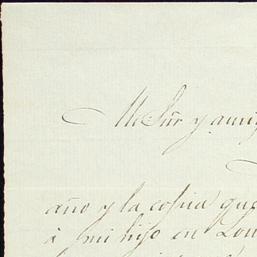 Sñr y amig
año y la copia que
à mi hijo en Lon